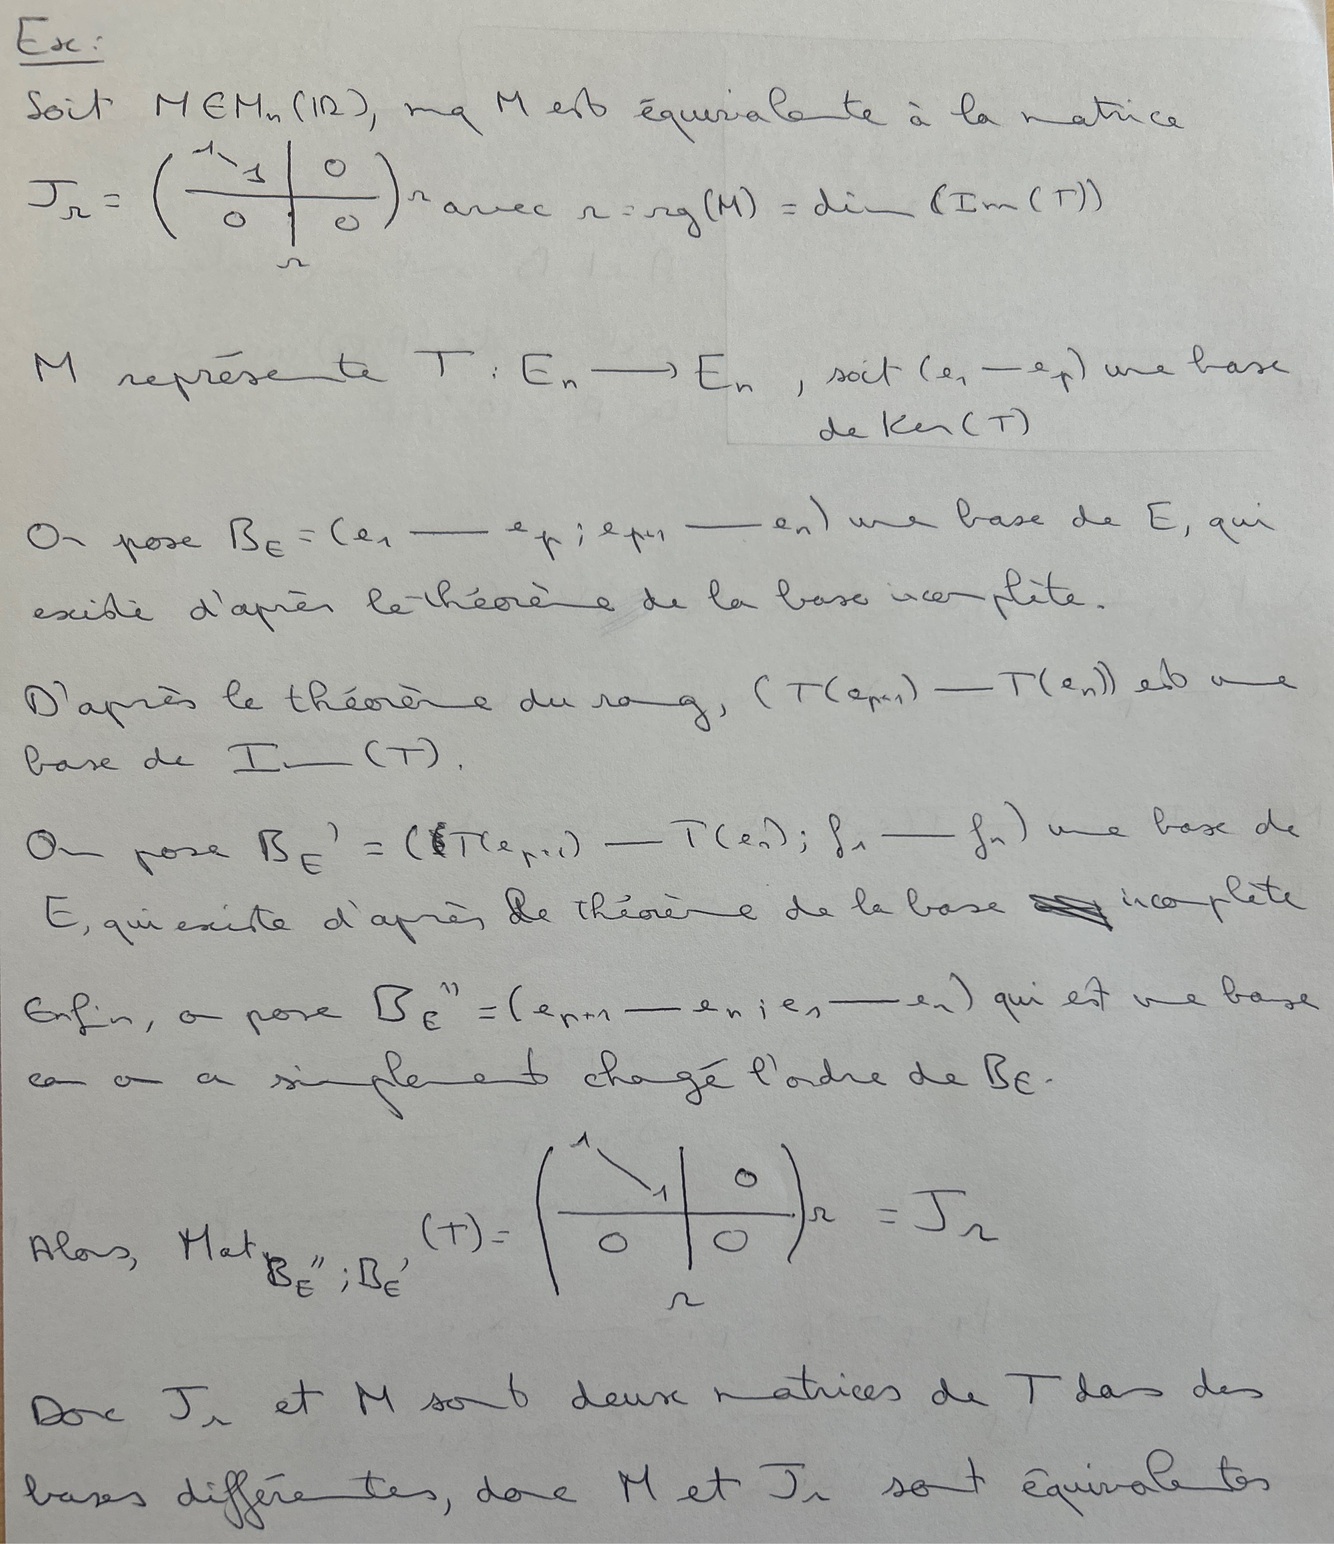 Ex:
Soit M∈Mₙ(ℝ), mq M est équivalente à la matrice
Jᵣ = ( 1 \ 1 | 0 ) r avec r = rg(M) = dim (Im(T))
0 | 0
r
M représente T : Eₙ → Eₙ , soit (e₁ — eₚ) une base
de Ker(T)
On pose B_E = (e₁ — eₚ ; eₚ₊₁ — eₙ) une base de E, qui
existe d'après le théorème de la base incomplète.
D'après le théorème du rang, (T(eₚ₊₁) — T(eₙ)) est une
base de Im(T).
On pose B_E' = (T(eₚ₊₁) — T(eₙ); f₁ — fₙ) une base de
E, qui existe d'après le théorème de la base incomplète
Enfin, on pose B_E'' = (eₚ₊₁ — eₙ ; e₁ — eₙ) qui est une base
car on a simplement changé l'ordre de B_E.
Alors, Mat_B_E'' ; B_E' (T) = ( 1 \ 1 | 0 ) r = Jᵣ
0 | 0
r
Donc Jᵣ et M sont deux matrices de T dans des
bases différentes, donc M et Jᵣ sont équivalentes